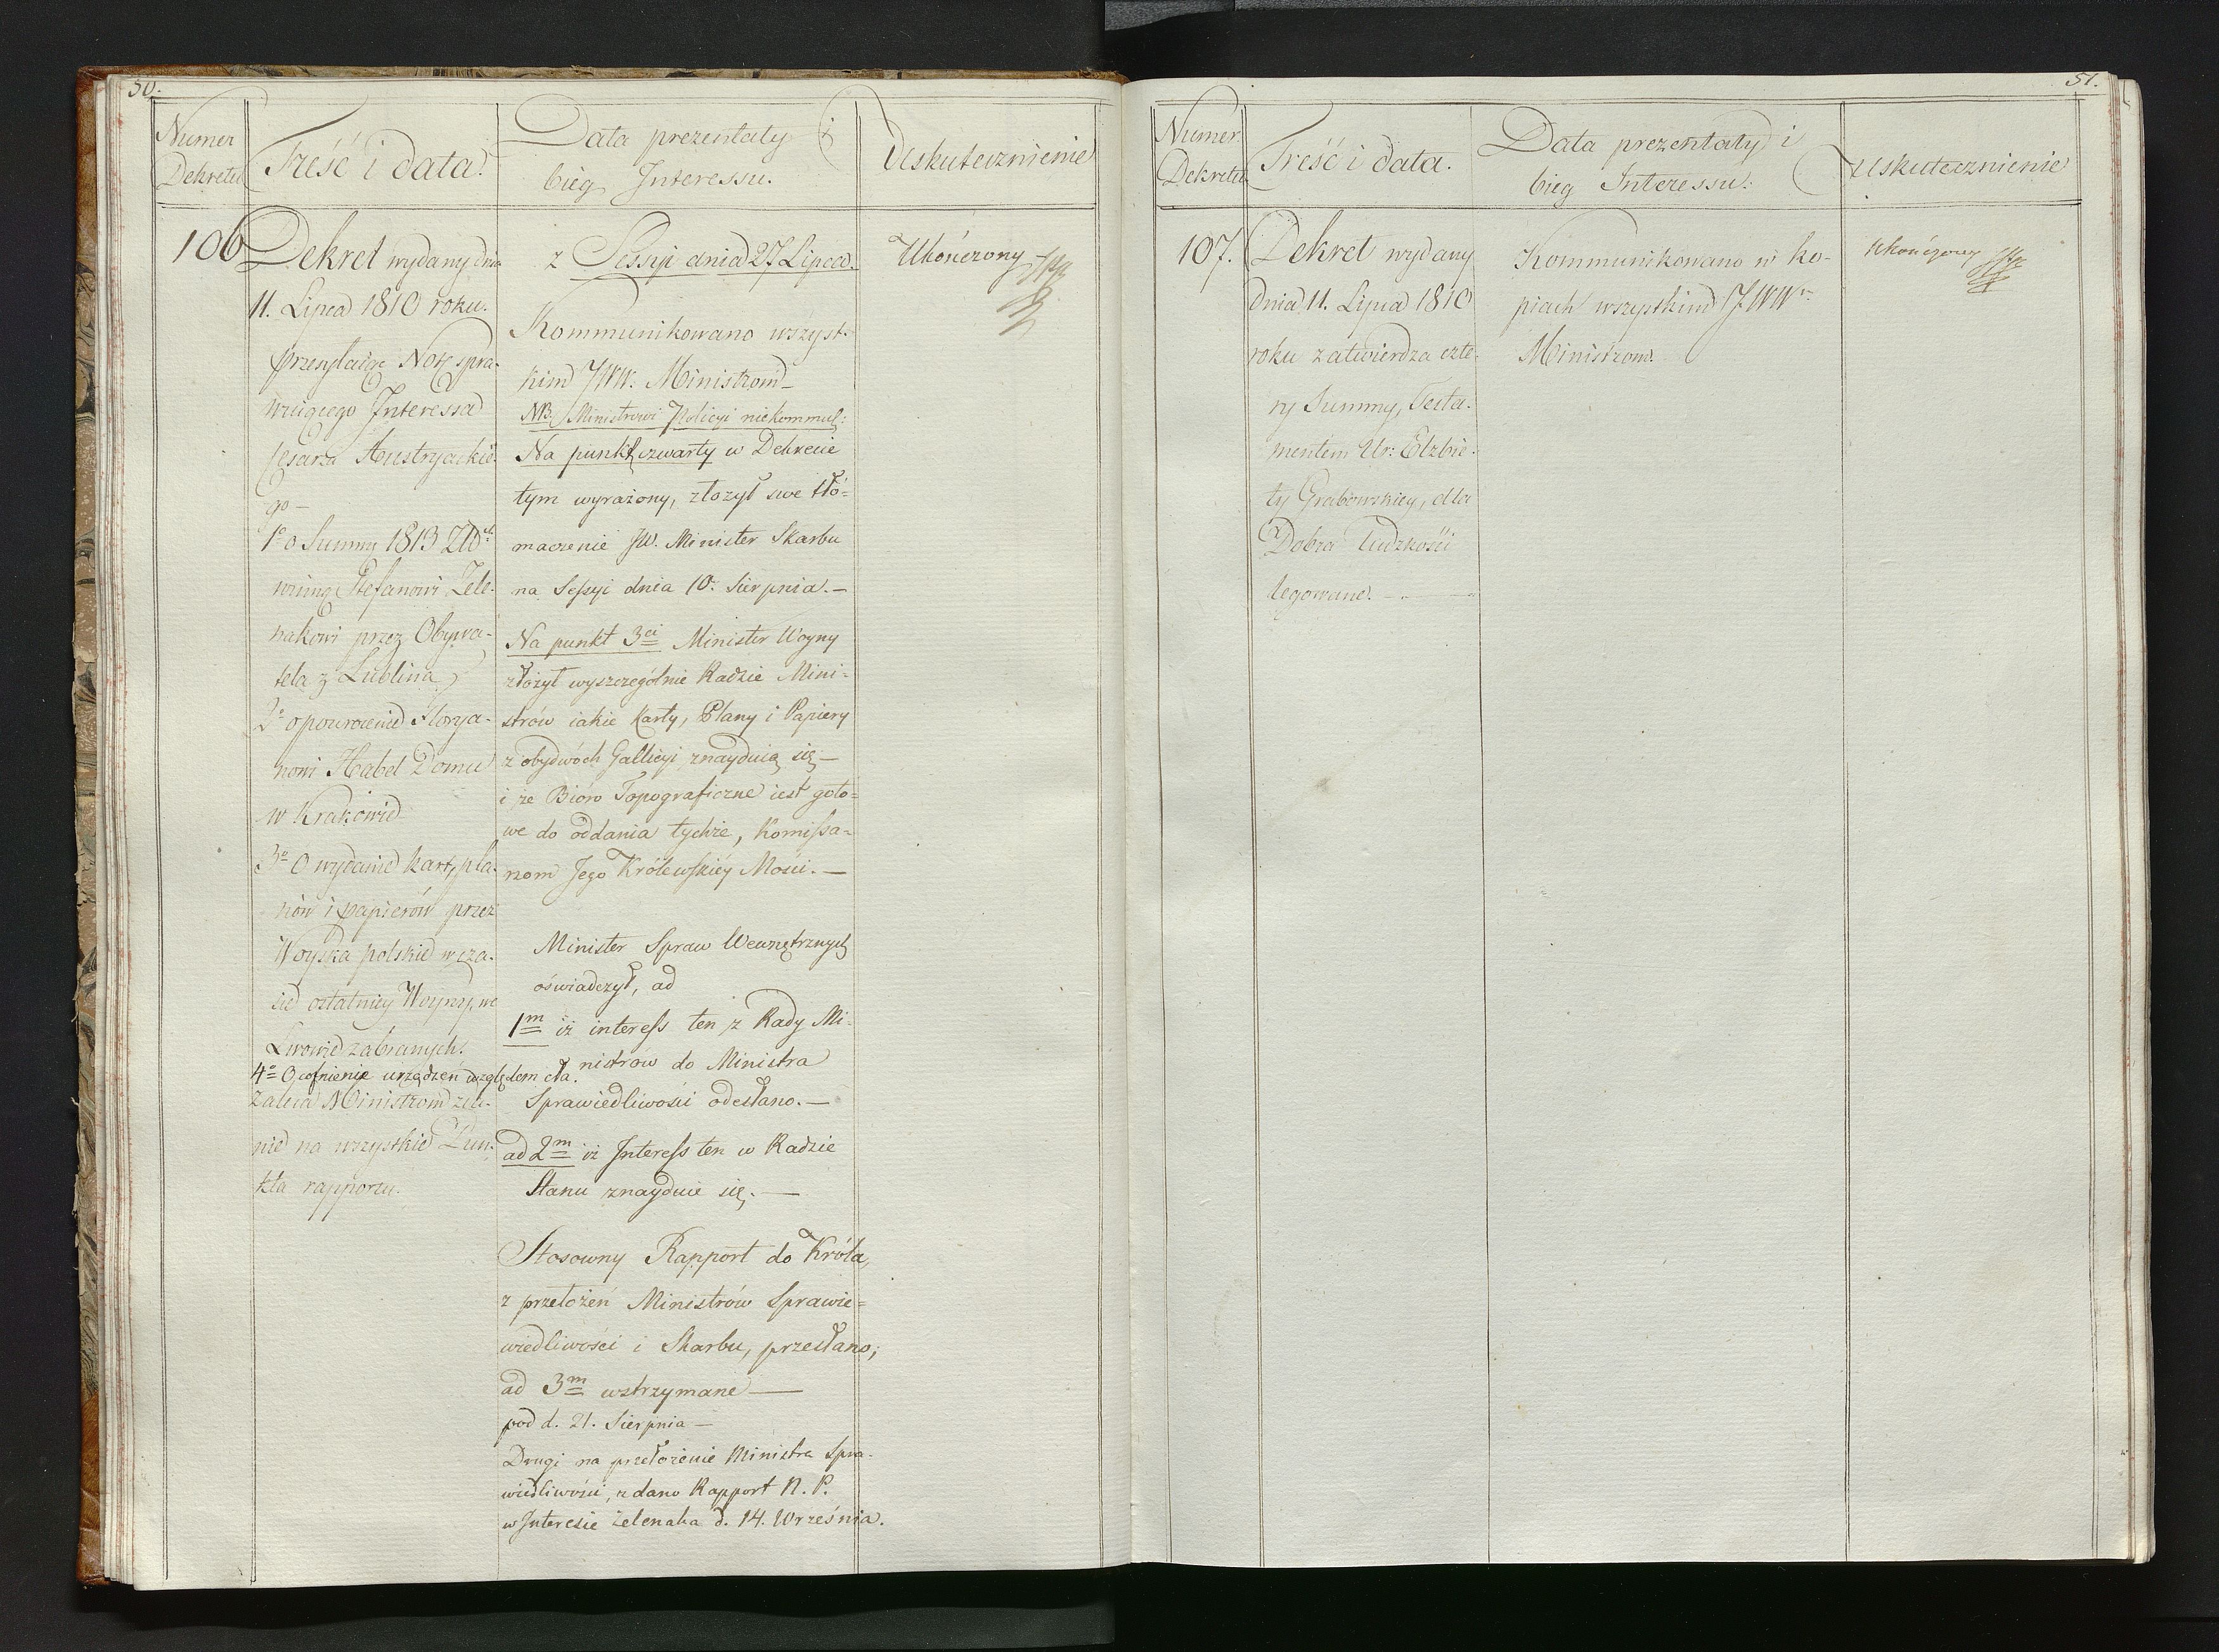 50.
Numer
Dekretu
Treść i data.
Data prezentaty i
bieg Interessu.
Uskutecznienie
106
Dekret wydany dnia
11. Lipca 1810 roku.
przesyłaiąc Notę spra-
wuiącego Interessa
Cesarza Austryackie-
go —
1º o Summę 1813 Złot.
winną Stefanowi Zele-
nakowi przez Obywa-
tela z Lublina
2º o powrocenie Florya-
nowi Habel Domu
w Krakowie
3º O wydanie kart, pla-
nów i papierów przez
Woyska polskie w cza-
sie ostatniey Woyny, we
Lwowie zabranych.
4º O cofnienie urządzeń względem cła.
Zaleca Ministrom zda-
nie na wszystkie Pun-
kta rapportu.
z Sessyi dnia 27 Lipca.
Kommunikowano wszyst-
kim JWW. Ministrom —
NB. Ministrowi Policyi niekommuk:
Na punkt czwarty w Dekrecie
tym wyrażony, złożył swe tłó-
maczenie JW. Minister Skarbu
na Sessyi dnia 10. Sierpnia. —
Na punkt 3ci Minister Woyny
złożył wyszczególnie Radzie Mini-
strów iakie Karty, Plany i Papiery
z obydwóch Gallicyi znayduią się —
i że Bióro Topograficzne iest goto-
we do oddania tychże, Komissa-
rzom Jego Królewskiéy Mości. —
Minister Spraw Wewnętrznych
oświadczył, ad
1m iż interess ten z Rady Mi-
nistrów do Ministra
Sprawiedliwości odesłano. —
ad 2m iż Interess ten w Radzie
Stanu znayduie się. —
Stosowny Rapport do Króla,
z przełożeń Ministrów Sprawie-
wiedliwości i Skarbu, przesłano;
ad 3m wstrzymane —
pod d. 21. Sierpnia —
Drugi na przełożenie Ministra Spra-
wiedliwości, zdano Rapport N. P.
w Interesie Zelenaka d. 14. Września.
Ukończony
51.
Numer
Dekretu
Treść i data.
Data prezentaty i
bieg Interessu.
Uskutecznienie
107.
Dekret wydany
dnia 11. Lipca 1810
roku zatwierdza czte-
ry Summy, Testa-
mentem Ur: Elzbie-
ty Grabowskiey, dla
Dobra ludzkości
legowane. —
Kommunikowano w ko-
piach wszystkim JWWm
Ministrom.
Ukończony